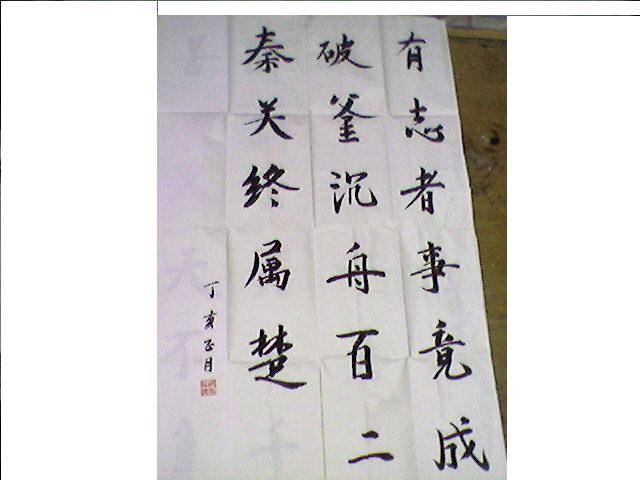 有志者事竟成
破釜沉舟百二
秦关终属楚
丁亥正月